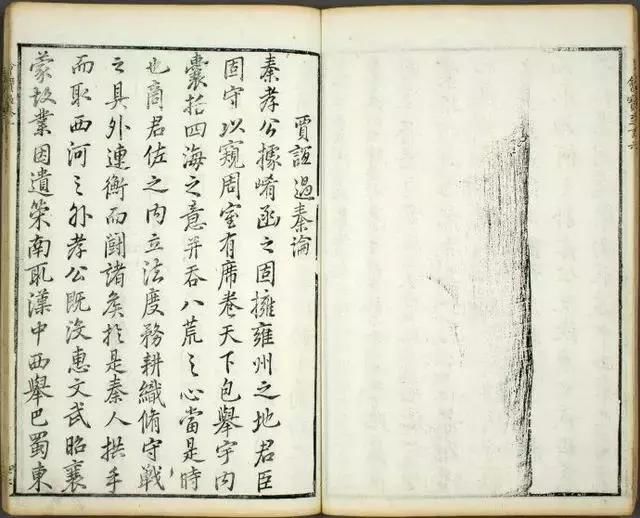 賈誼過秦論
秦孝公據崤函之固擁雍州之地君臣
固守以窺周室有席卷天下包舉宇內
囊括四海之意并吞八荒之心當是時
也商君佐之內立法度務耕織脩守戰
之具外連衡而鬭諸矦於是秦人拱手
而取西河之外孝公既沒惠文武昭襄
蒙故業因遺策南取漢中西舉巴蜀東